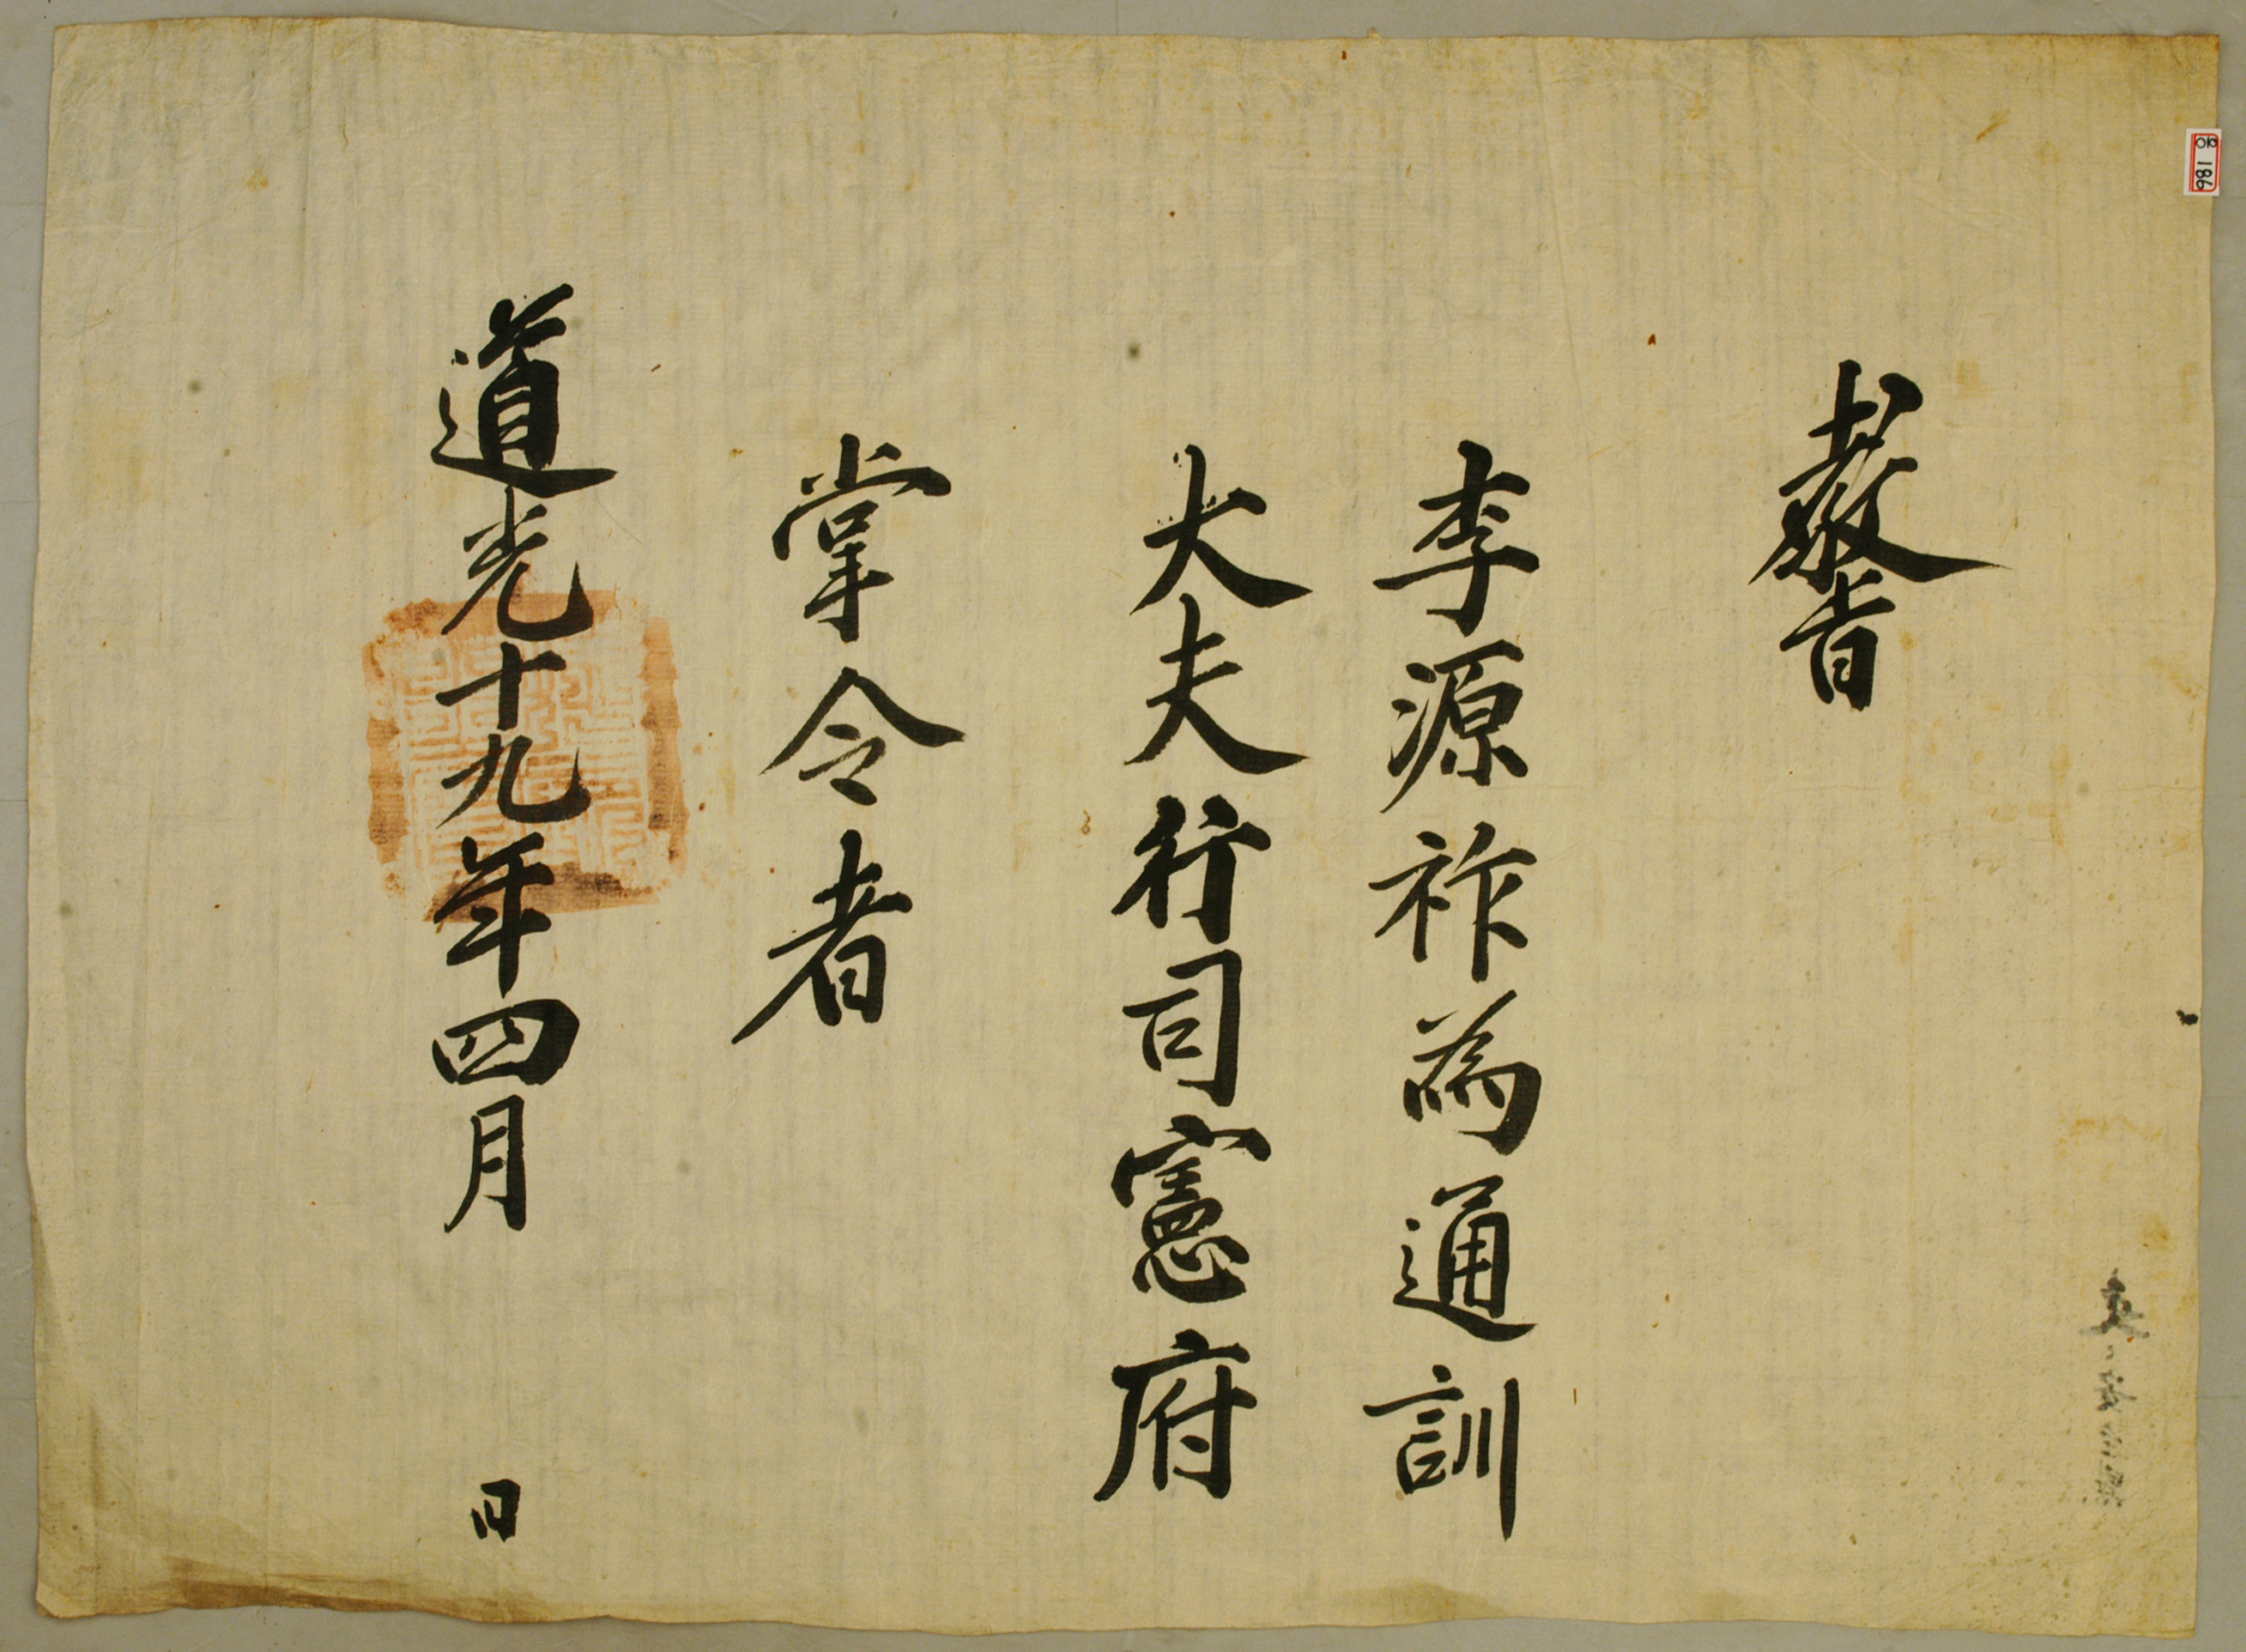 敎旨
李源祚為通訓
大夫行司憲府
掌令者
道光十九年四月 日
186